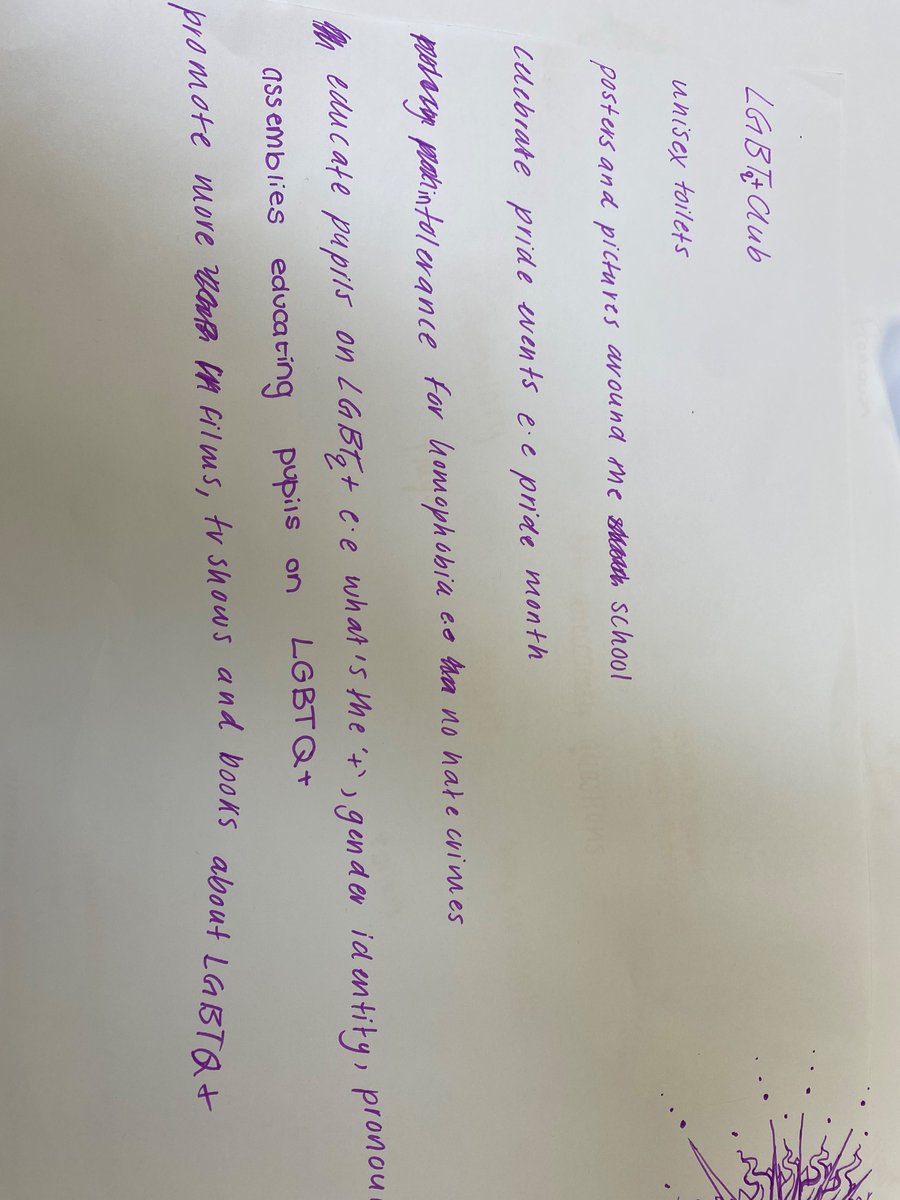 LGBTQ+ Club
unisex toilets
posters and pictures around the school
celebrate pride events e.e pride month
intolerance for homophobia e.e no hate crimes
educate pupils on LGBTQ+ e.e what is the '+', gender identity, pronou
assemblies educating pupils on LGBTQ+
promote more films, tv shows and books about LGBTQ+